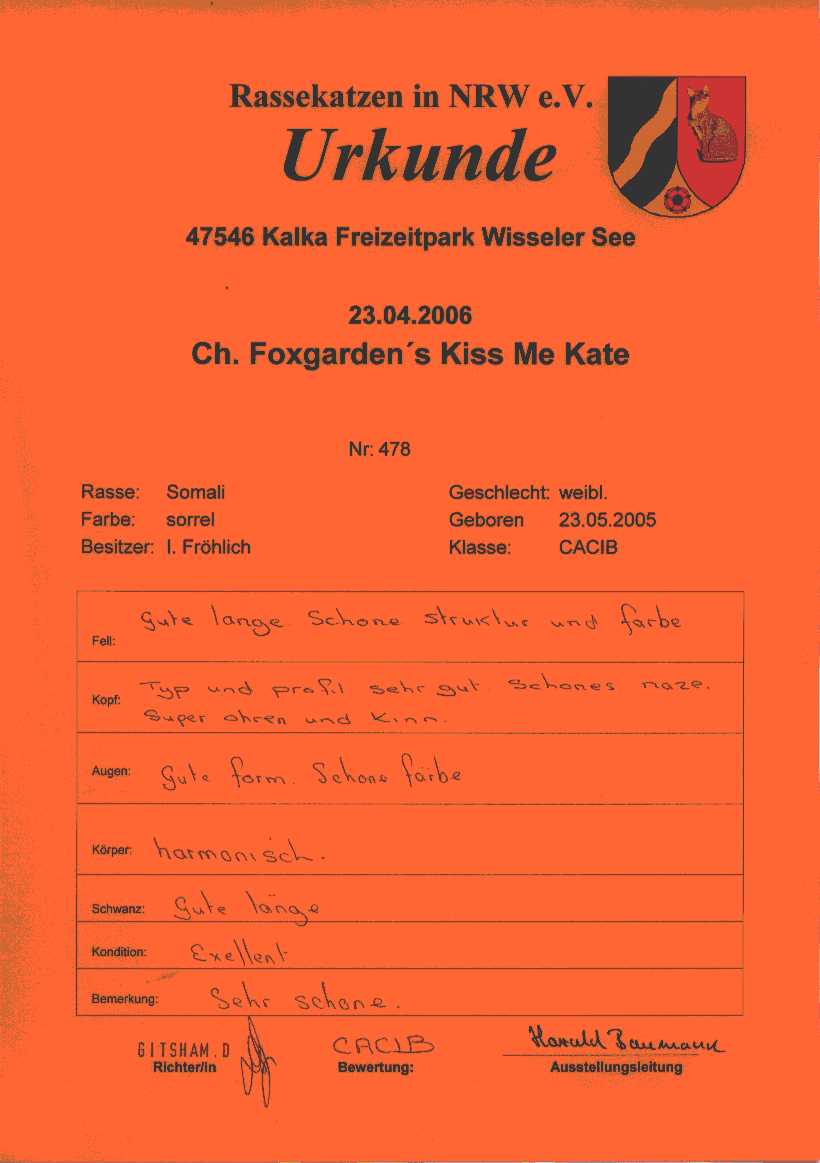 Rassekatzen in NRW e.V.
Urkunde
47546 Kalka Freizeitpark Wisseler See
23.04.2006
Ch. Foxgarden´s Kiss Me Kate
Nr: 478
Rasse: Somali Geschlecht: weibl.
Farbe: sorrel Geboren 23.05.2005
Besitzer: I. Fröhlich Klasse: CACIB
Fell: Gute lange. Schone struktur und farbe
Kopf: Typ und profil sehr gut. Schones naze.
Super ohren und Kinn.
Augen: Gute form. Schone farbe
Körper: harmonisch.
Schwanz: Gute länge
Kondition: Exellent
Bemerkung: Sehr schone.
GITSHAM.D CACIB Harald Baumann
Richter/in Bewertung: Ausstellungsleitung